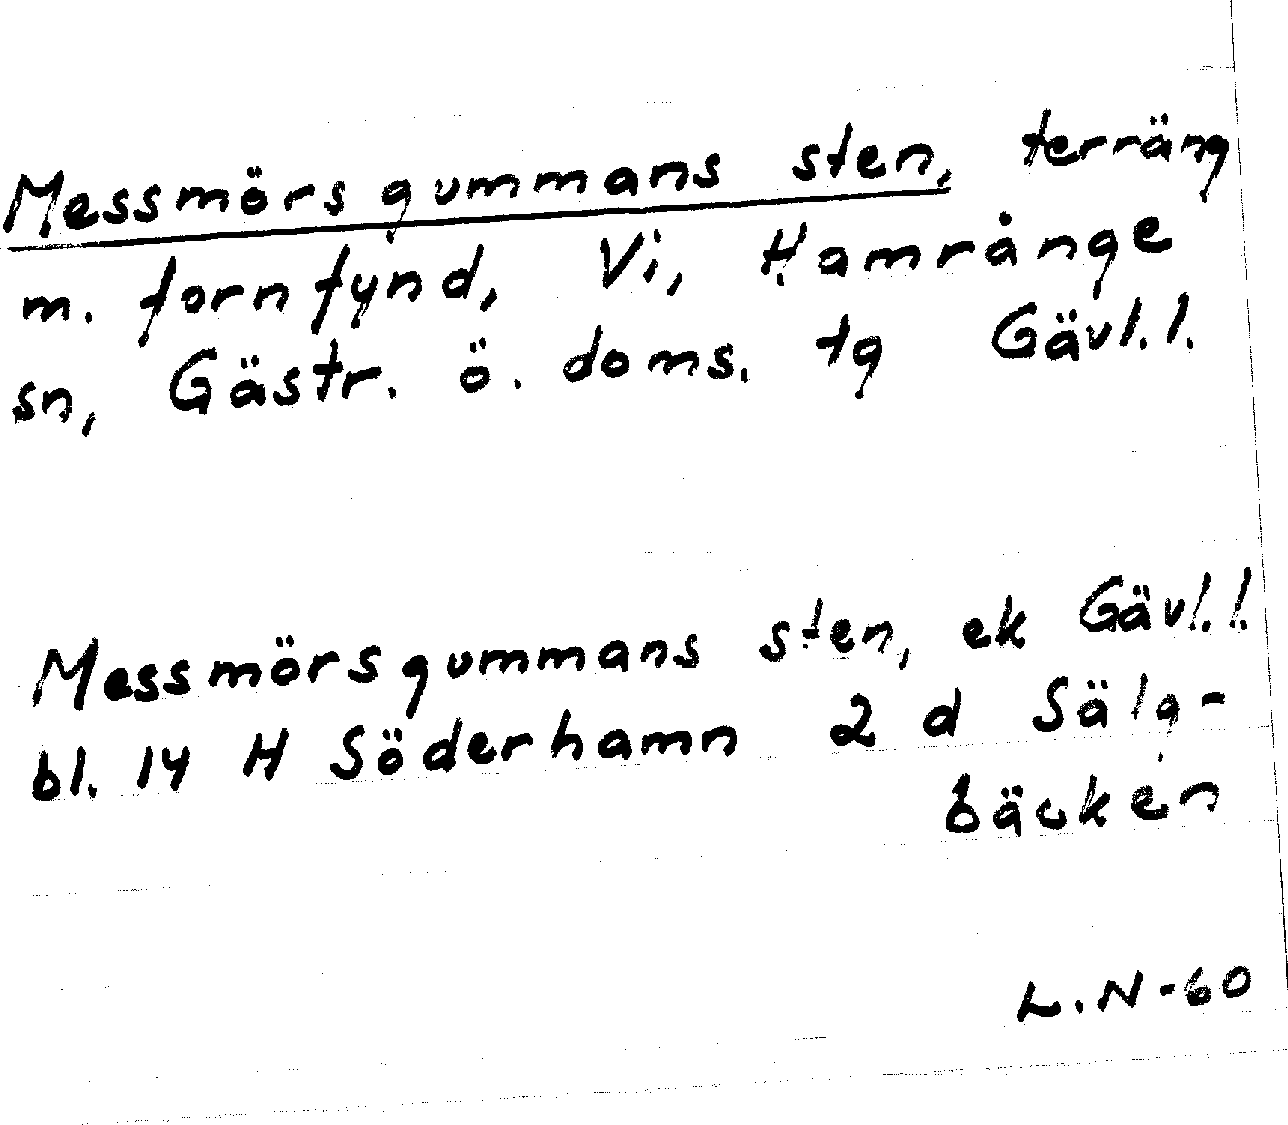 Messmörsgummans sten, terräng
m. fornfynd, Vi, Hamrånge
sn, Gästr. ö. doms. tg Gävl.l.
Messmörsgummans sten, ek Gävl.l.
bl. 14 H Söderhamn 2 d Sälg-
bäcken
L.N-60